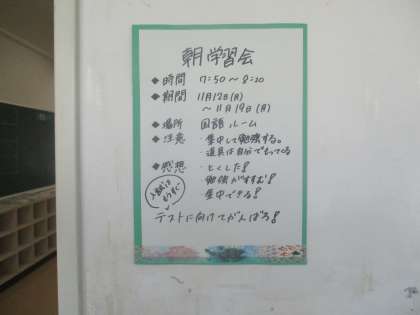 朝学習会
◆時間 7:50〜8:20
◆期間 11月12日(月)
〜11月19日(月)
◆場所 国語ルーム
◆注意 ・集中して勉強する。
・道具は自分でもってくる
◆感想 ・とくした!
・勉強がすすむ!
・集中できる!
入試は
もうすぐ
テストに向けてがんばろう!